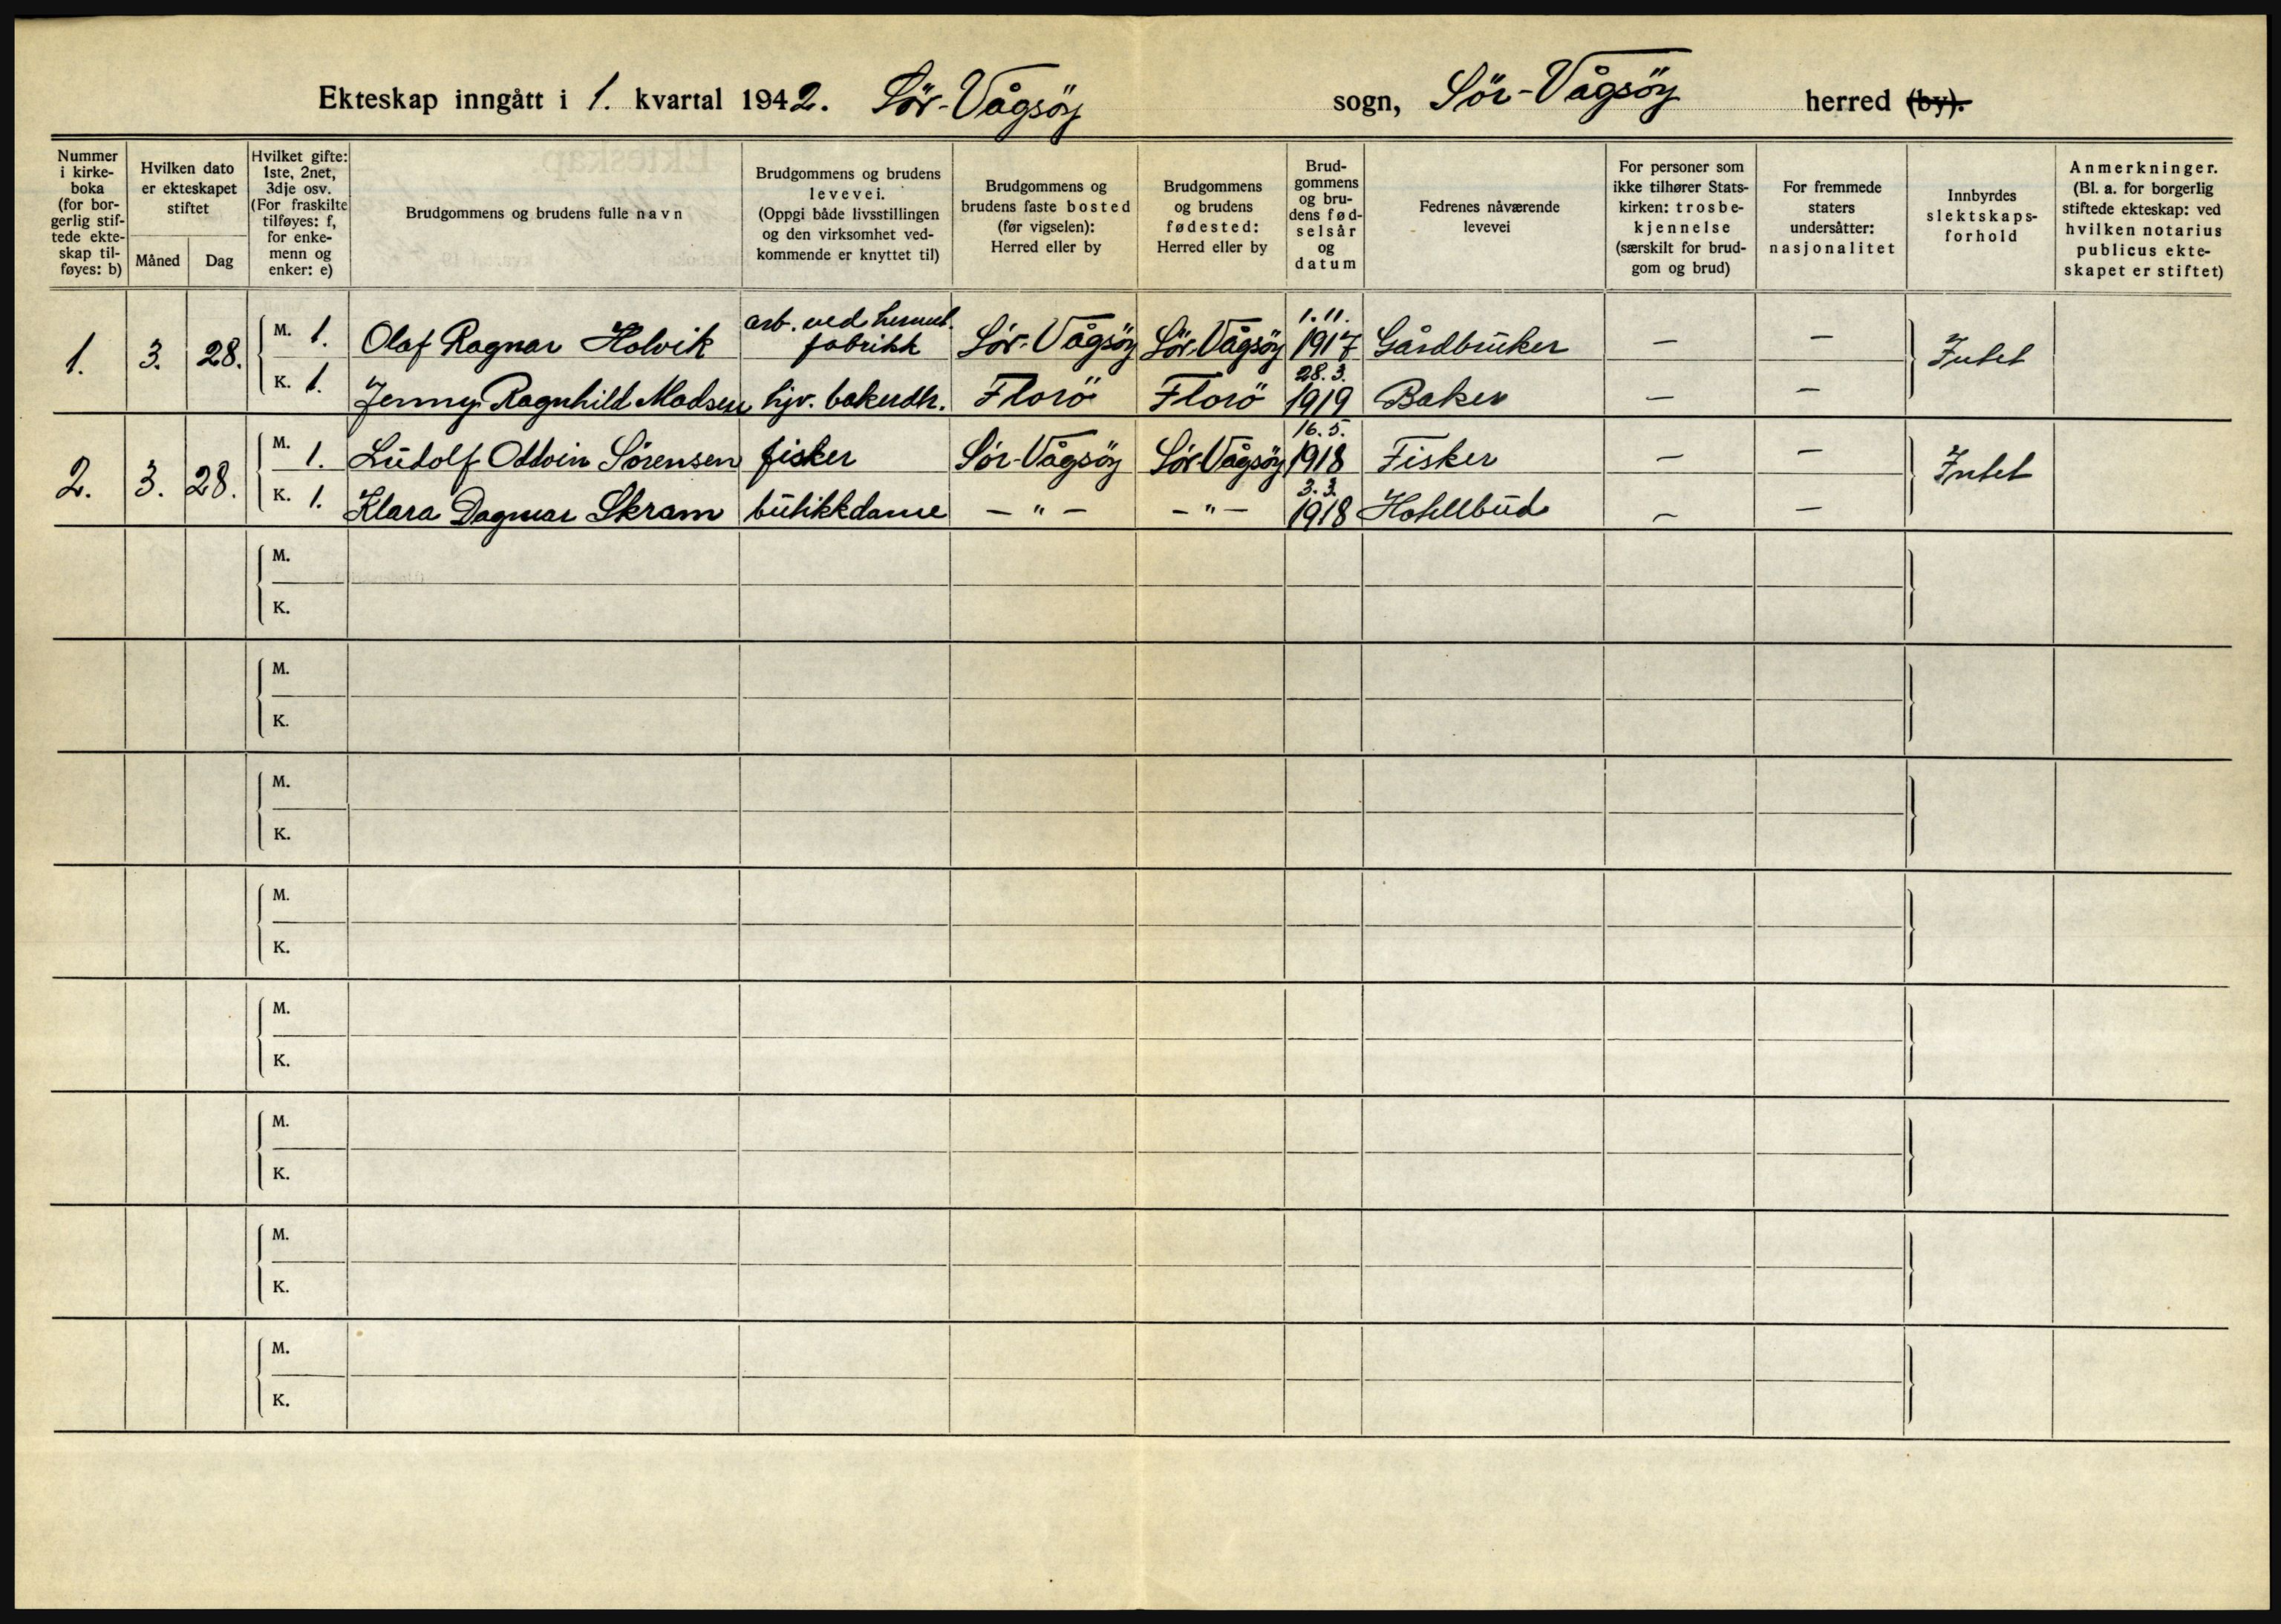 Ekteskap inngått i 1. kvartal 1942. Sör-Vågsöy sogn, Sör-Vågsöy herred (by).
Nummer i kirke- boka (for bor- gerlig stif- tede ekte- skap til- føyes: b)
Hvilken dato er ekteskapet stiftet
Måned
Dag
Hvilket gifte: 1ste, 2net, 3dje osv. (For fraskilte tilføyes: f, for enke- menn og enker: e)
Brudgommens og brudens fulle navn
Brudgommens og brudens levevei. (Oppgi både livsstillingen og den virksomhet ved- kommende er knyttet til)
Brudgommens og brudens faste bosted (før vigselen): Herred eller by
Brudgommens og brudens fødested: Herred eller by
Brud- gommens og bru- dens fød- selsår og datum
Fedrenes nåværende levevei
For personer som ikke tilhører Stats- kirken: trosbe- kjennelse (særskilt for brud- gom og brud)
For fremmede staters undersåtter: nasjonalitet
Innbyrdes slektskaps- forhold
Anmerkninger. (Bl. a. for borgerlig stiftede ekteskap: ved hvilken notarius publicus ekte- skapet er stiftet)
1. 3. 28. M. 1. Olaf Ragnar Holvik arb. ved hermet. fabrikk Sör-Vågsöy Sör-Vågsöy 1.11. 1917 Gårdbruker — — Intet
K. 1. Jenny Ragnhild Madsen hjv. bakerdtr. Florö Florö 28.3. 1919 Baker — —
2. 3. 28. M. 1. Ludolf Oddvin Sörensen fisker Sör-Vågsöy Sör-Vågsöy 16.5. 1918 Fisker — — Intet
K. 1. Klara Dagmar Skram butikkdame — " — — " — 3.3. 1918 Hotellbud — —
M.
K.
M.
K.
M.
K.
M.
K.
M.
K.
M.
K.
M.
K.
M.
K.